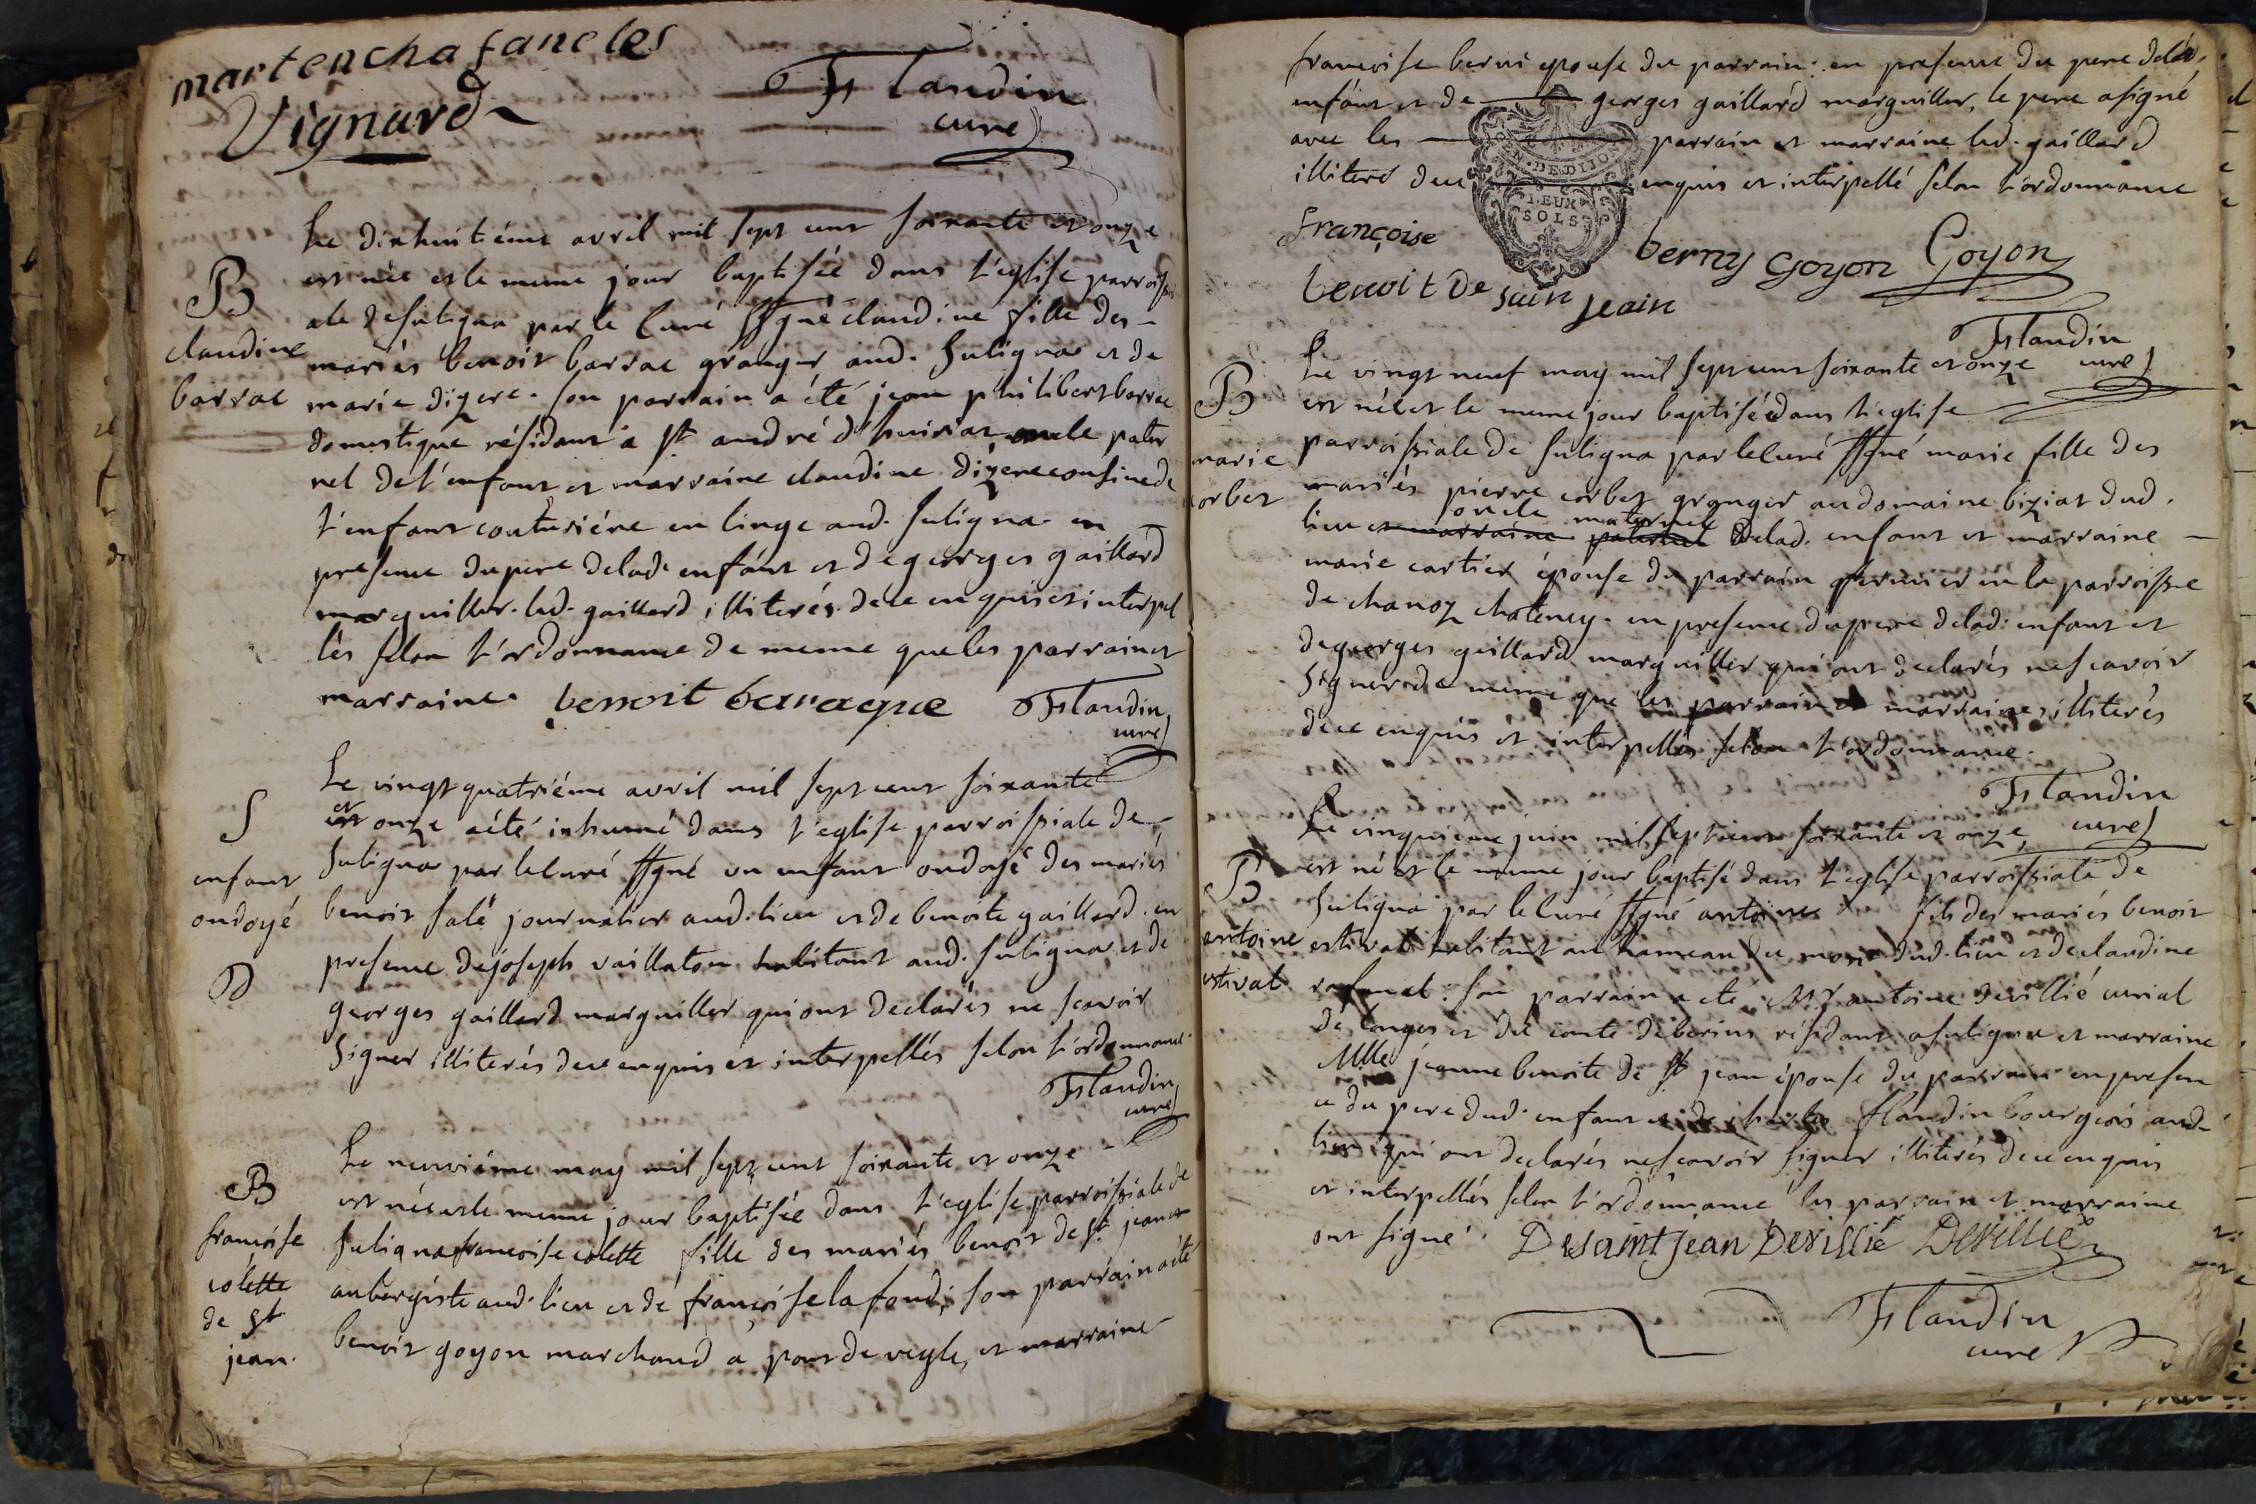 martencha faneles
Vignard
Flandin
curé
Le dixhuitiéme avril mil sept cent soixante et onze
est née et le meme jour baptisée dans l'eglise parroissi
ale de suligna par le curé ssgné claudine fille des
mariés benoit barrac granger aud. Suligna et de
marie dizere. son parrain a été jean philibert barrac
domestique résidant a St andré d'huiriat oncle pater
nel de l'enfant et marraine claudine dizere cousine de
l'enfant couturiére en linge aud. suligna. en
presence du pere delad. enfant et de georges gaillard
marguiller. led. gaillard illiterés de ce enquis et interpel
lés selon l'ordonnance de meme que les parrain et
marraine. benoit barraque Flandin
curé
B
claudine
barrac
Le vingt quatriéme avril mil sept cent soixante
et onze a été inhumé dans l'eglise parroissiale de
suligna par le curé ssgné un enfant ondoyé des mariés
benoit salé journalier aud. lieu et de benoite gaillard. en
presence de joseph vaillaton habitant aud. suligna et de
georges gaillard marguiller qui ont declarés ne scavoir
signer illiterés de ce enquis et interpellés selon l'ordonnance.
Flandin
curé
S
enfant
ondoyé
Le neuviéme may mil sept cent soixante et onze
est née et le meme jour baptisée dans l'eglise parroissiale de
suligna francoise colette fille des mariés benoit de St jean et
aubergiste aud. lieu et de francoise lafond; son parrain a été
benoit goyon marchand a pont de veyle, et marraine
B
francoise
colette
de St
jean.
francoise berni epouse du parrain: en presence du pere delad.
enfant et de georges gaillard marguiller, le pere a signé
avec les parrain et marraine led. gaillard
illiteré de ce enquis et interpellé selon l'ordonnance
GEN. DE DIJON
DEUX
SOLS
Françoise berny Goyon Goyon
benoit De sain jean
Flandin
curé
Le vingt neuf may mil sept cent soixante et onze
est née et le meme jour baptisée dans l'eglise
parroissiale de suligna par le curé ssgné marie fille des
mariés pierre corbet granger au domaine biziat dud.
oncle maternel
lieu et marraine paternel delad. enfant et marraine
marie cartier épouse du parrain fermier en la parroisse
de chanoz chateney. en presence du pere delad. enfant et
de georges gaillard marguiller qui ont declarés ne scavoir
signer de meme que les parrain et marraine illiterés
de ce enquis et interpellés selon l'ordonnance.
Flandin
curé
B
marie
corbet
Le cinquieme juin mil sept cent soixante et onze,
est né et le meme jour baptisé dans l'eglise parroissiale de
suligna par le curé ssgné antoine fils des mariés benoit
estivat habitant au hameau du dud. lieu et de claudine
son parrain a été Mr antoine devillié curial
de longes et du comté de berins résidant a suligna et marraine
Mlle jeanne benoite de St jean épouse du parrain en presen
ce du pere dud. enfant et de charles flandin bourgeois aud.
lieu qui ont declarés ne scavoir signer illiterés de ce enquis
et interpellés selon l'ordonnance les parrain et marraine
ont signé. Desaintjean Devillié Devillié
Flandin
curé
B
antoine
estivat